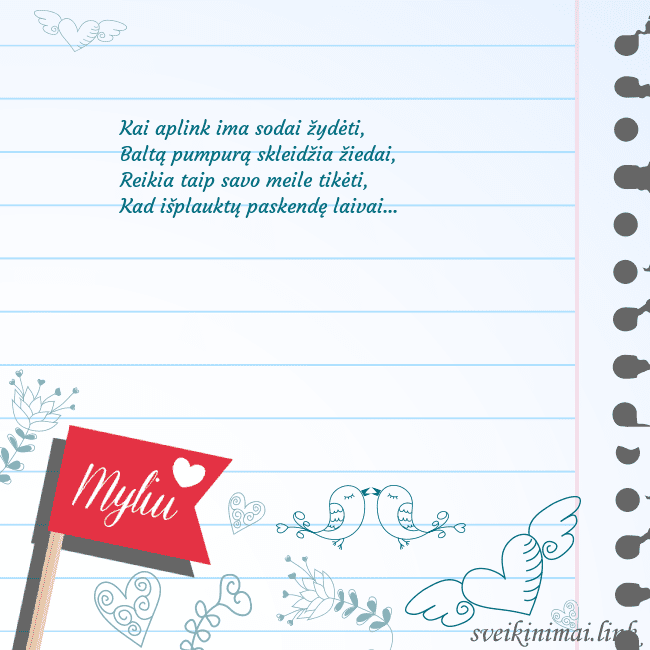 Kai aplink ima sodai žydėti,
Baltą pumpurą skleidžia žiedai,
Reikia taip savo meile tikėti,
Kad išplauktų paskendę laivai...
Myliu
sveikinimai.link